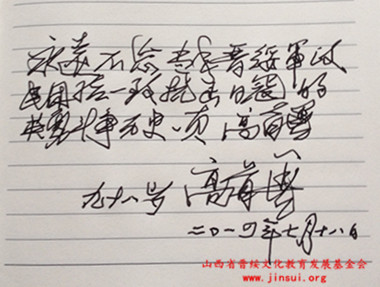 永远不忘当年晋绥军政
民团结一致抗击日寇的
英勇斗争历史一页 高首善
九十八号 高首善
二〇一四年七月十八日
山西省晋绥文化教育发展基金会
www.jinsui.org